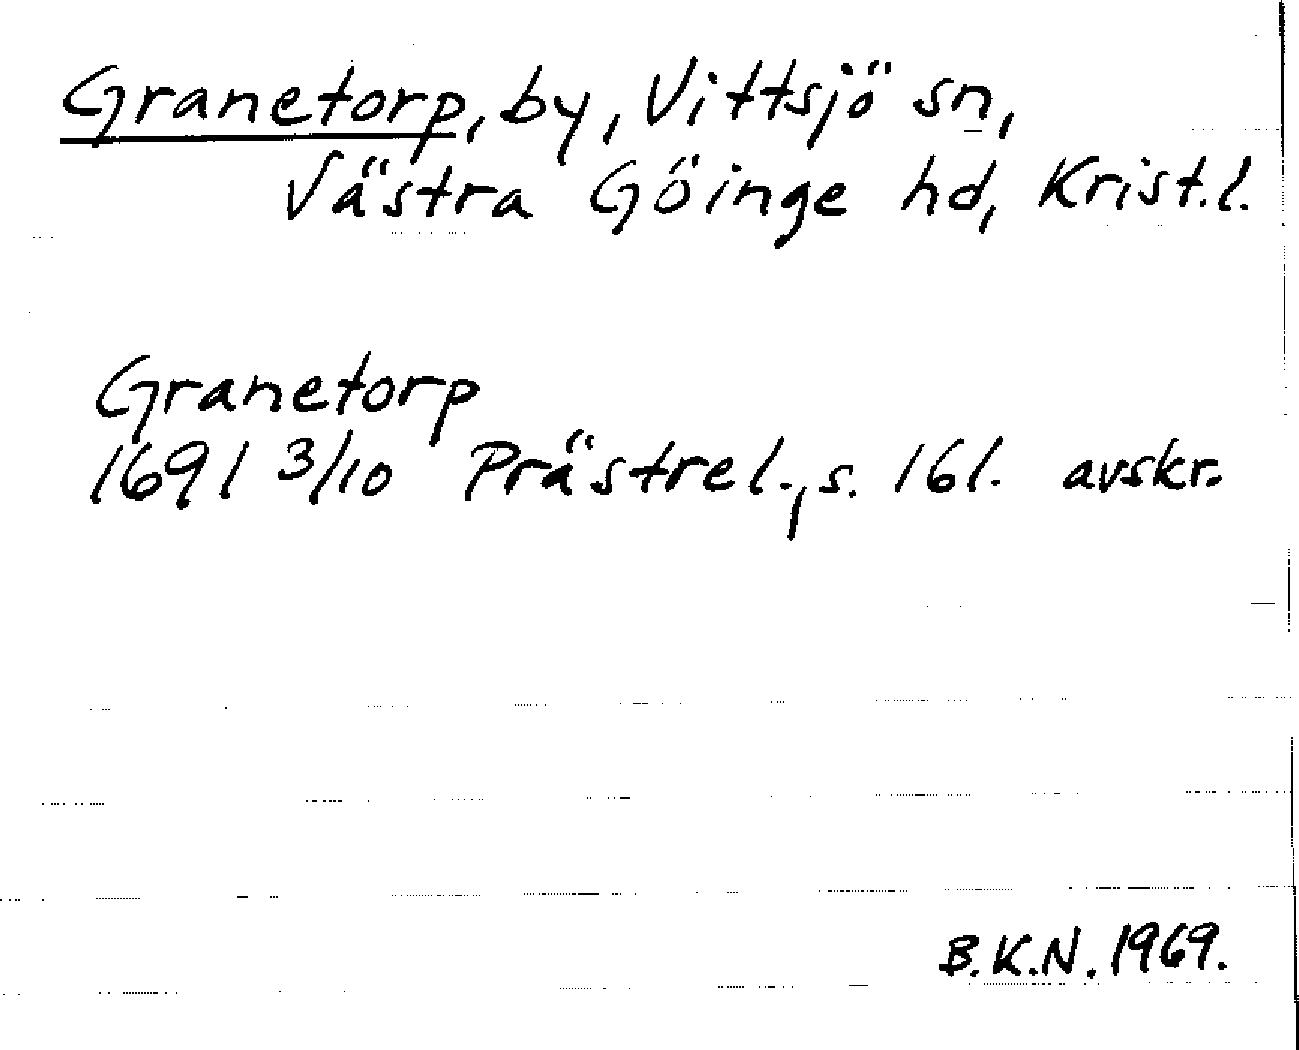 Granetorp, by, Vittsjö sn,
Västra Göinge hd, Krist.l.
Granetorp
1691 3/10 Prästrel., s. 161. avskr.
B.K.N. 1969.